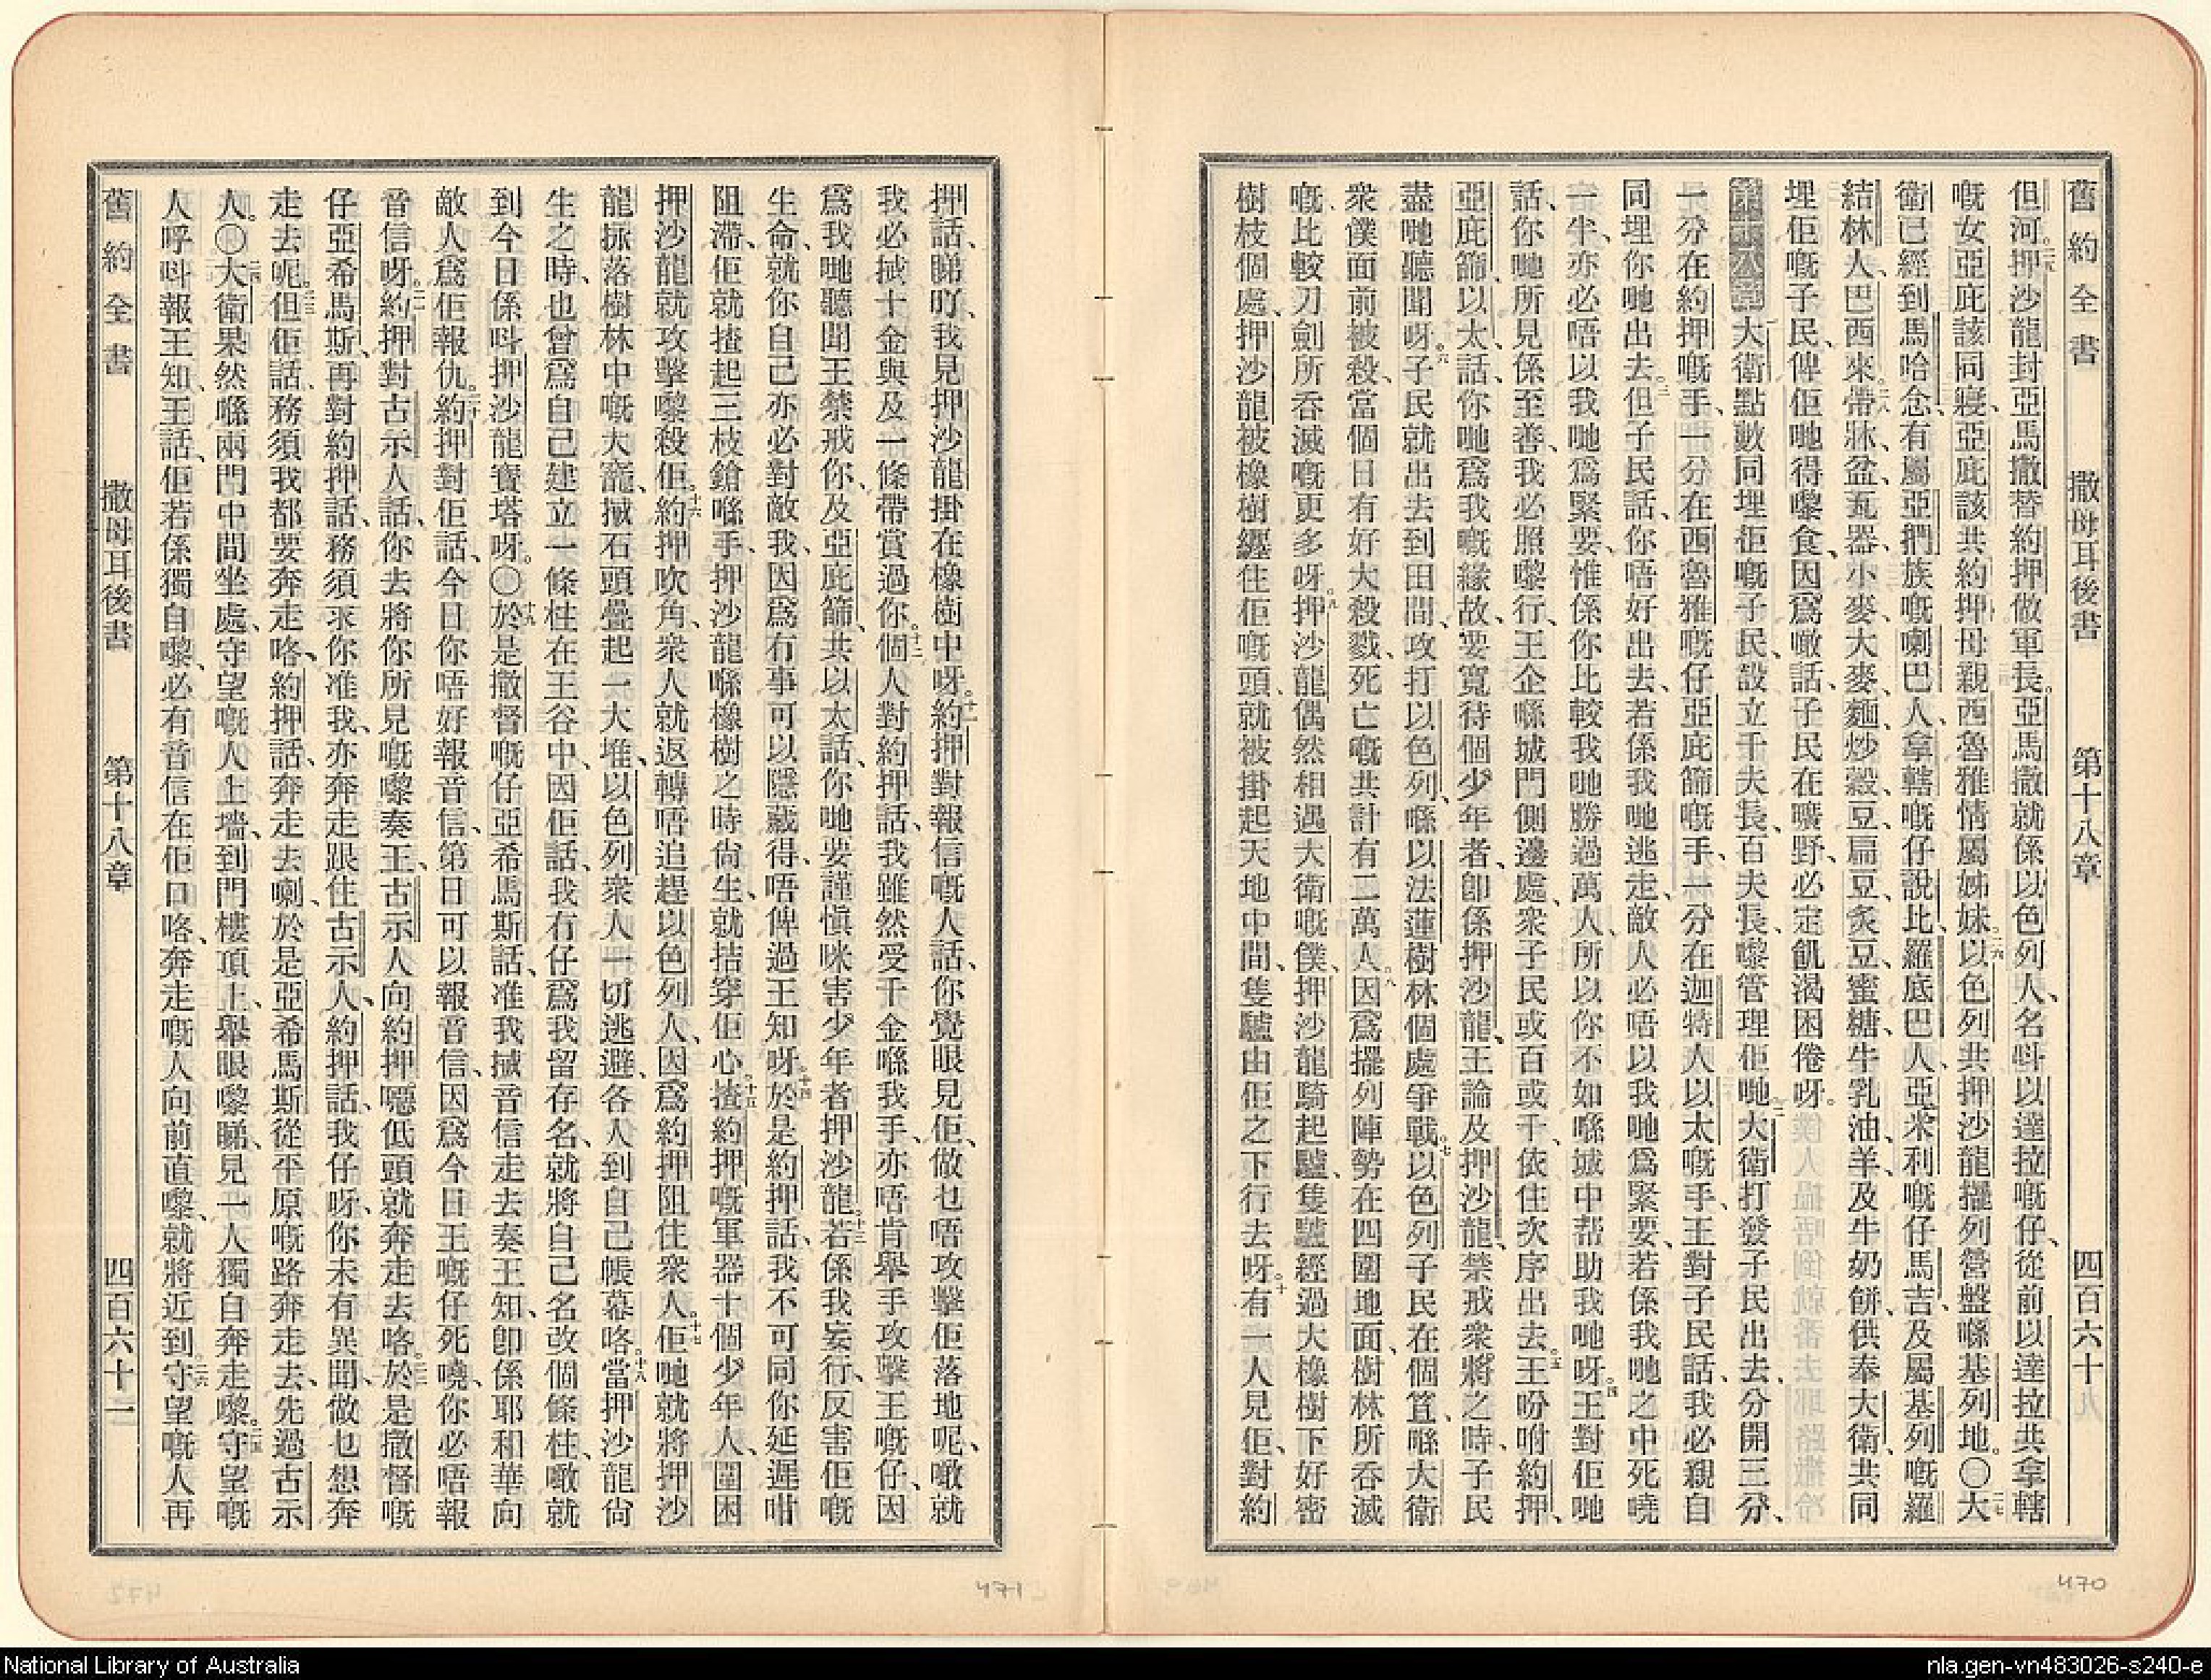 舊約全書 撒母耳後書 第十八章 四百六十
但河。二五押沙龍封亞馬撒替約押做軍長。亞馬撒就係以色列人、名呌以達拉嘅仔、從前以達拉共拿轄
嘅女亞庇該同寢、亞庇該共約押母親西魯雅情屬姊妹。二六以色列共押沙龍擺列營盤喺基列地。〇二七大
衛已經到馬哈念、有屬亞捫族嘅喇巴人拿轄嘅仔說比、羅底巴人亞米利嘅仔馬吉、及屬基列嘅羅
結林人巴西來。二八帶牀、盆、瓦器、小麥、大麥、麵、炒穀、豆、扁豆、炙豆、蜜糖、牛乳油、羊、及牛奶餅、供奉大衛、共同
埋佢嘅子民、俾佢哋得嚟食、因爲噉話、子民在曠野、必定飢渴困倦呀。
第十八章 大衛點數同埋佢嘅子民、設立千夫長、百夫長、嚟管理佢哋。二大衛打發子民出去、分開三分、
一分在約押嘅手、一分在西魯雅嘅仔亞庇篩嘅手、一分在迦特人以太嘅手、王對子民話、我必親自
同埋你哋出去。三但子民話、你唔好出去、若係我哋逃走、敵人必唔以我哋爲緊要、若係我哋之中死曉
一半、亦必唔以我哋爲緊要、惟係你比較我哋勝過萬人、所以你不如喺城中帮助我哋呀。四王對佢哋
話、你哋所見係至善、我必照嚟行、王企喺城門側邊處、衆子民或百或千、依住次序出去。五王吩咐約押、
亞庇篩、以太、話、你哋爲我嘅緣故、要寬待個少年者、卽係押沙龍、王論及押沙龍、禁戒衆將之時、子民
盡哋聽聞呀。六子民就出去到田間、攻打以色列、喺以法蓮樹林個處爭戰。七以色列子民在個笪、喺大衛
衆僕面前被殺、當個日有好大殺戮、死亡嘅共計有二萬人。八因爲擺列陣勢在四圍地面、樹林所吞滅
嘅、比較刀劍所吞滅嘅更多呀。九押沙龍偶然相遇大衛嘅僕、押沙龍騎起驢、隻驢經過大橡樹下好密
樹枝個處、押沙龍被橡樹纒住佢嘅頭、就被掛起天地中間、隻驢由佢之下行去呀。十有一人見佢、對約
押話、睇吖、我見押沙龍掛在橡樹中呀。十一約押對報信嘅人話、你覺眼見佢、做乜唔攻擊佢落地呢、噉就
我必拭十金與及一條帶賞過你。十二個人對約押話、我雖然受千金喺我手、亦唔肯舉手攻擊王嘅仔、因
爲我哋聽聞王禁戒你、及亞庇篩、共以太話、你哋要謹愼咪害少年者押沙龍。十三若係我妄行、反害佢嘅
生命、就你自己亦必對敵我、因爲冇事可以隱藏得、唔俾過王知呀。十四於是約押話、我不可同你延遲咁
阻滯、佢就揸起三枝鎗喺手、押沙龍喺橡樹之時尙生、就拮穿佢心。十五揸約押嘅軍器十個少年人、圍困
押沙龍、就攻擊嚟殺佢。十六約押吹角、衆人就返轉唔追趕以色列人、因爲約押阻住衆人。十七佢哋就將押沙
龍掁落樹林中嘅大窿、搣石頭疊起一大堆、以色列衆人一切逃避、各人到自己帳幕咯。十八當押沙龍尙
生之時、也曾爲自己建立一條柱在王谷中、因佢話、我冇仔爲我留存名、就將自己名改個條柱、噉就
到今日係呌押沙龍寶塔呀。〇十九於是撒督嘅仔亞希馬斯話、准我搣音信走去奏王知、卽係耶和華向
敵人爲佢報仇。二十約押對佢話、今日你唔好報音信、第日可以報音信、因爲今日王嘅仔死曉、你必唔報
音信呀。二一約押對古示人話、你去將你所見嘅嚟奏王、古示人向約押𡁻低頭就奔走去咯。二二於是撒督嘅
仔亞希馬斯、再對約押話、務須求你准我、亦奔走跟住古示人、約押話、我仔呀、你未有異聞、做乜想奔
走去呢。二三但佢話、務須我都要奔走咯、約押話、奔走去喇、於是亞希馬斯從平原嘅路奔走去、先過古示
人。〇二四大衛果然喺兩門中間坐處、守望嘅人上墻、到門樓頂上、舉眼嚟睇、見一人獨自奔走嚟。二五守望嘅
人呼呌報王知、王話、佢若係獨自嚟、必有音信在佢口咯、奔走嘅人向前直嚟、就將近到。二六守望嘅人再
舊約全書 撒母耳後書 第十八章 四百六十一
471
470
National Library of Australia
nla.gen-vn483026-s240-e